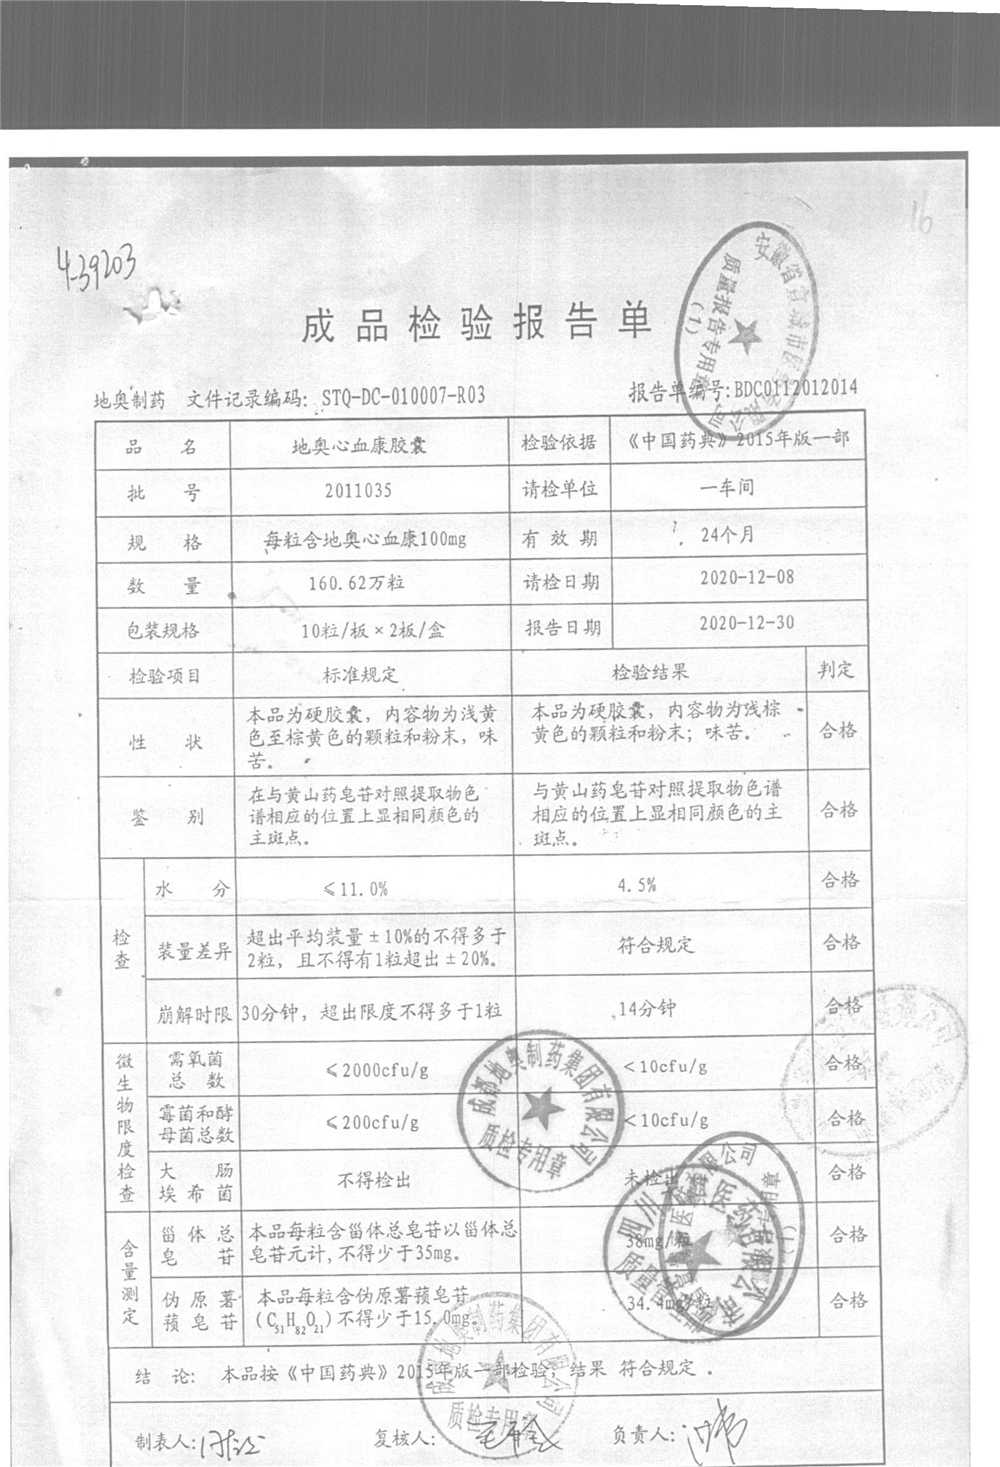 16
4-39203
成品检验报告单
地奥制药 文件记录编码: STQ-DC-010007-R03 报告单编号: BDC0112012014
品 名 地奥心血康胶囊 检验依据 《中国药典》2015年版一部
批 号 2011035 请检单位 一车间
规 格 每粒含地奥心血康100mg 有 效 期 24个月
数 量 160.62万粒 请检日期 2020-12-08
包装规格 10粒/板×2板/盒 报告日期 2020-12-30
检验项目 标准规定 检验结果 判定
性 状
本品为硬胶囊, 内容物为浅黄
色至棕黄色的颗粒和粉末, 味
苦。
本品为硬胶囊, 内容物为浅棕
黄色的颗粒和粉末; 味苦。
合格
鉴 别
在与黄山药皂苷对照提取物色
谱相应的位置上显相同颜色的
主斑点。
与黄山药皂苷对照提取物色谱
相应的位置上显相同颜色的主
斑点。
合格
检查
水 分 ≤11.0% 4.5% 合格
装量差异
超出平均装量±10%的不得多于
2粒, 且不得有1粒超出±20%。
符合规定 合格
崩解时限 30分钟, 超出限度不得多于1粒 14分钟 合格
微生物限度检查
需氧菌
总 数
≤2000cfu/g <10cfu/g 合格
霉菌和酵
母菌总数
≤200cfu/g <10cfu/g 合格
大 肠
埃希菌
不得检出 未检出 合格
含量测定
甾体总
皂 苷
本品每粒含甾体总皂苷以甾体总
皂苷元计, 不得少于35mg。
38mg/粒 合格
伪原薯
蓣皂苷
本品每粒含伪原薯蓣皂苷
(C51H82O21)不得少于15.0mg
34.4mg/粒 合格
结 论: 本品按《中国药典》2015年版一部检验, 结果 符合规定 。
制表人: 复核人: 负责人:
成都地奥制药集团有限公司
质检专用章
成都地奥制药集团有限公司
质检专用章
质量报告专用章
(1)